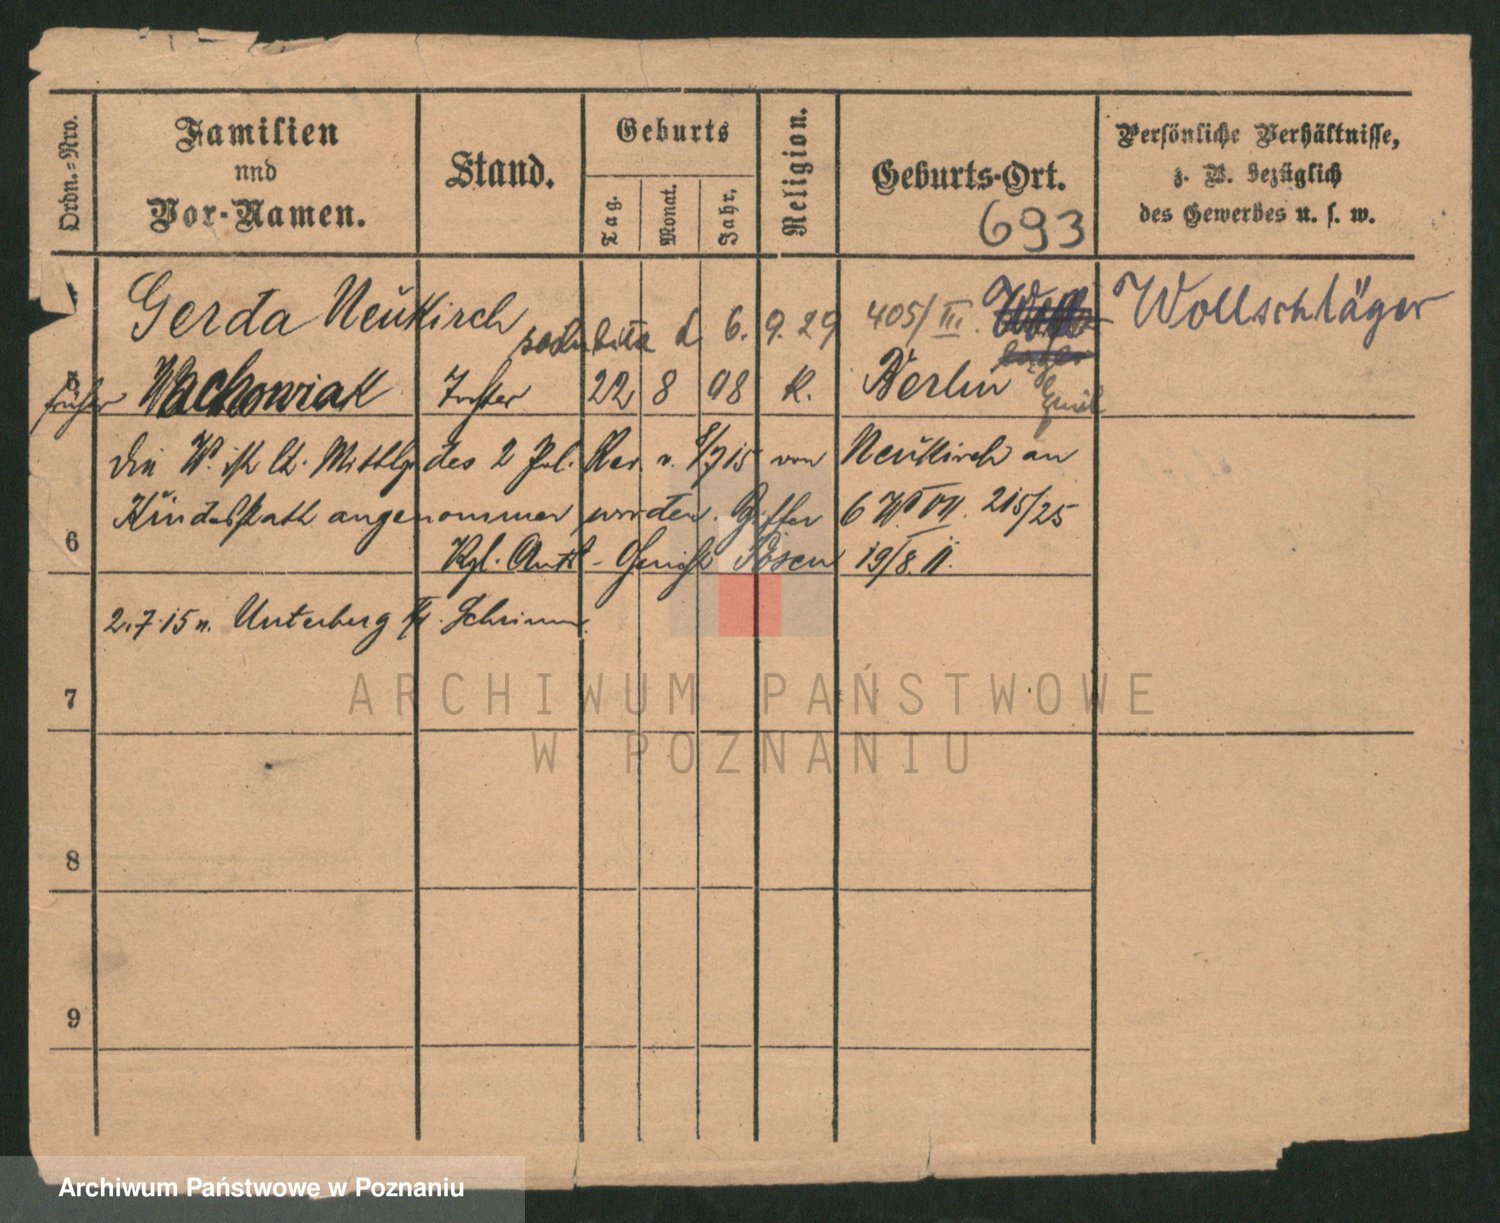 Ordn.=Nro.
Familien
und
Vor-Namen.
Stand.
Geburts
Tag.
Monat.
Jahr.
Religion.
Geburts-Ort.
693
Persönliche Verhältnisse,
z. B. bezüglich
des Gewerbes u. s. w.
Gerda Neukirch
d 6. 9. 29
405/III.
Wollschläger
5
früher Wachowiak Tochter 22 8 98 K. Berlin
Die W. ist lt. Mitthlg. des 2 Pol. Rev. v. 5/7 15 von Neukirch an
Kindesstatt angenommen worden. Ziffer 6 VII. 215/25
6
Kgl. Amts-Gericht Posen 19/8. 11.
2.7.15 n. Unterberg Kr. Schrimm.
7
8
9
ARCHIWUM PAŃSTWOWE
W POZNANIU
Archiwum Państwowe w Poznaniu